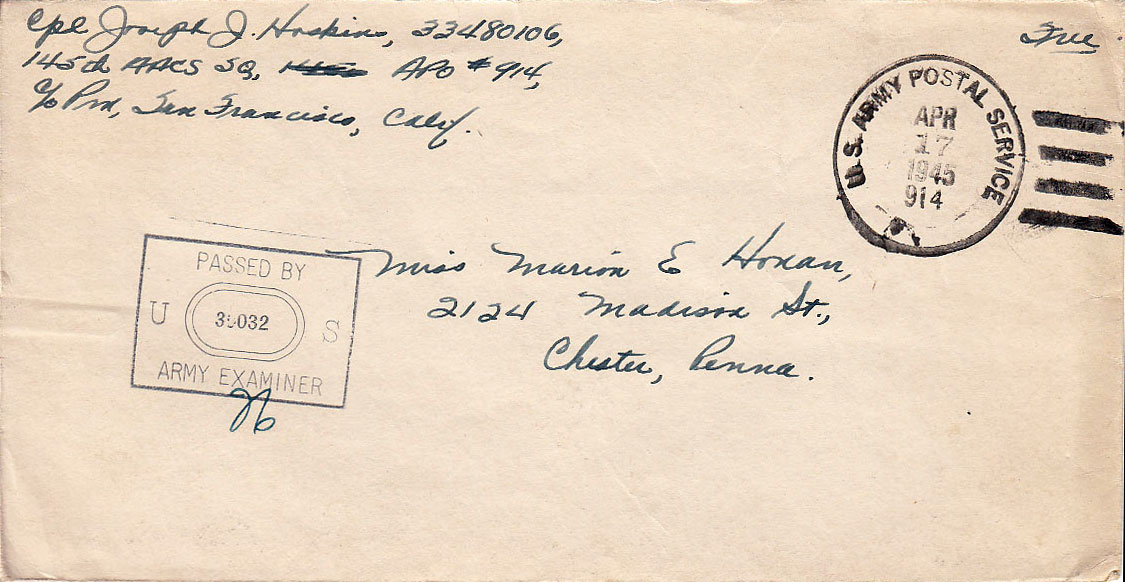 Cpl Joseph J. Hoskins, 33480106,
145th AACS SQ, APO #914,
c/o Pm, San Francisco, Calif.
Free
U.S. ARMY POSTAL SERVICE
APR
17
1945
914
PASSED BY
U S
ARMY EXAMINER
Miss Marion E Honan,
2124 Madison St.,
Chester, Penna.